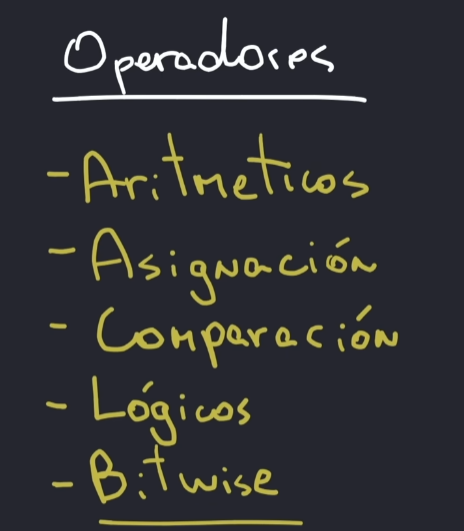 Operadores
- Aritmeticos
- Asignación
- Comparación
- Lógicos
- Bitwise